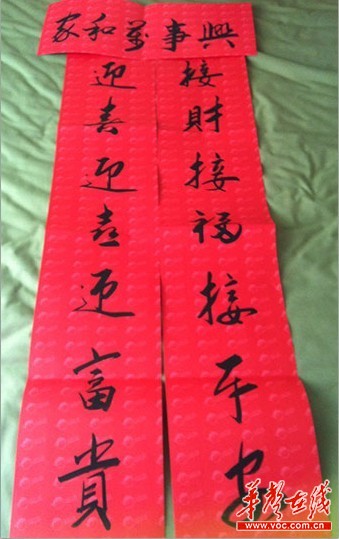 家和萬事興
接財接福接平安
迎春迎喜迎富貴
华声在线
www.voc.com.cn